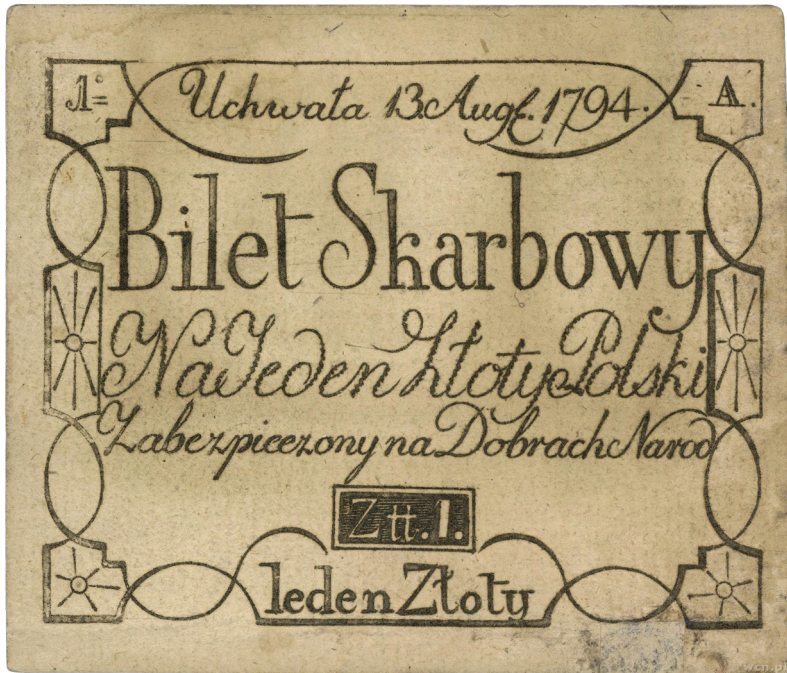 1= A.
Uchwała 13. Augl. 1794.
Bilet Skarbowy
Na Jeden Złoty Polski
Zabezpieczony na Dobrach Narod
Ztt. 1.
Ieden Złoty
wcn.pl